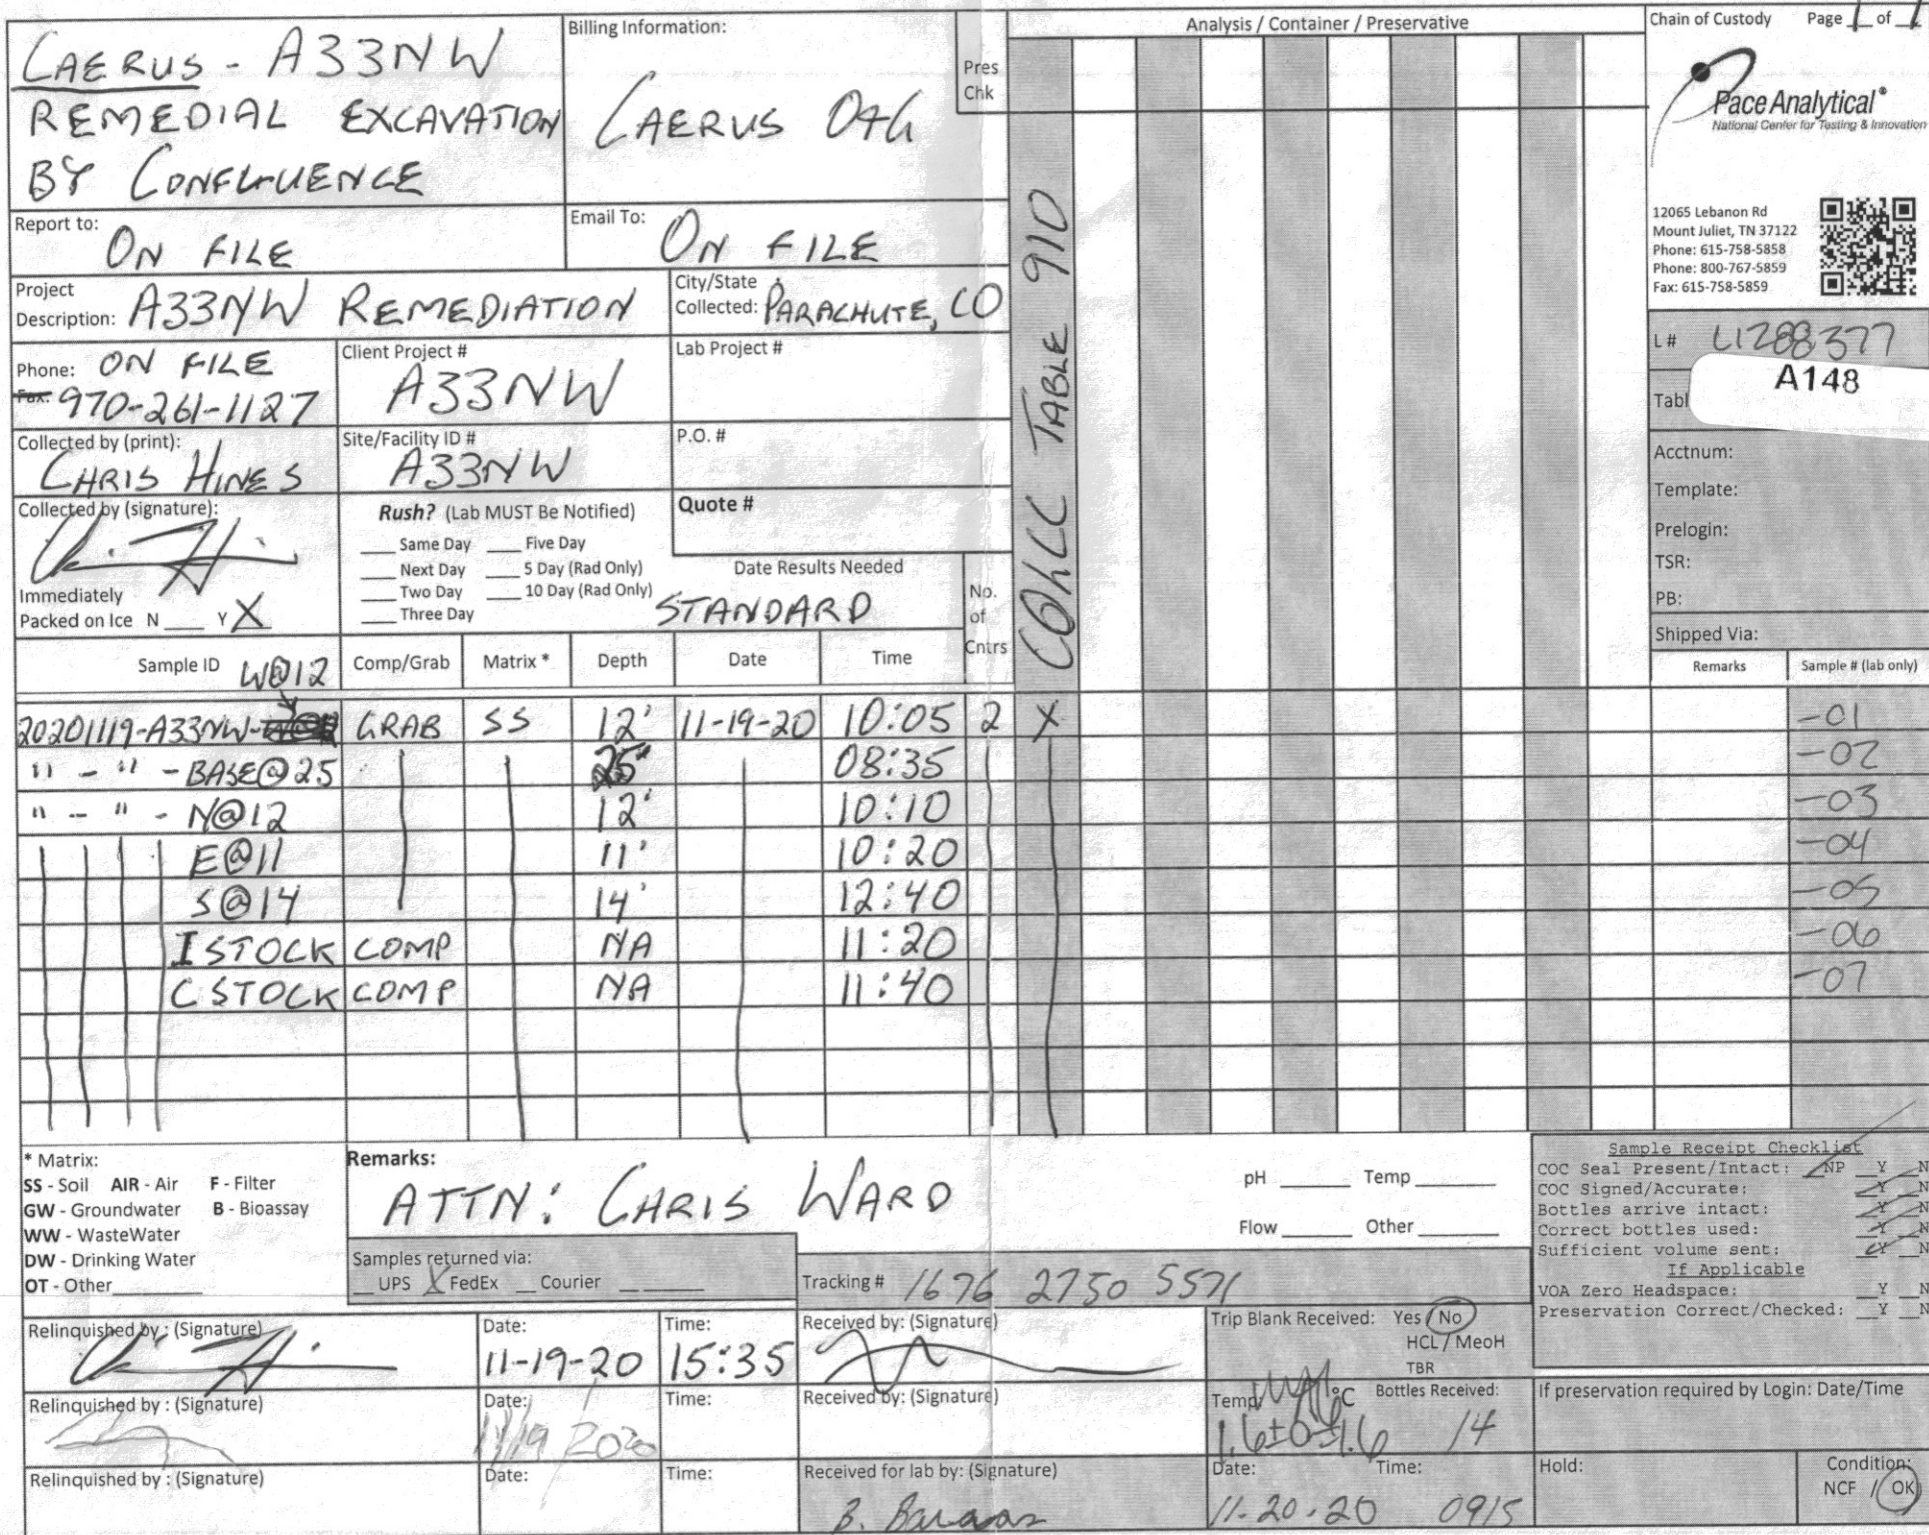 CAERUS - A33NW
REMEDIAL EXCAVATION
BY CONFLUENCE
Billing Information:
CAERUS O+G
Pres
Chk
Analysis / Container / Preservative
Chain of Custody Page 1 of 1
Pace Analytical®
National Center for Testing & Innovation
12065 Lebanon Rd
Mount Juliet, TN 37122
Phone: 615-758-5858
Phone: 800-767-5859
Fax: 615-758-5859
Report to:
ON FILE
Email To:
ON FILE
Project
Description: A33NW REMEDIATION
City/State
Collected: PARACHUTE, CO
Phone: ON FILE
Fax: 970-261-1127
Client Project #
A33NW
Lab Project #
L# L1288377
A148
Tabl
Collected by (print):
CHRIS HINES
Site/Facility ID #
A33NW
P.O. #
Acctnum:
Template:
Prelogin:
TSR:
PB:
Shipped Via:
Collected by (signature):
Immediately
Packed on Ice N ___ Y X
Rush? (Lab MUST Be Notified)
___ Same Day ___ Five Day
___ Next Day ___ 5 Day (Rad Only)
___ Two Day ___ 10 Day (Rad Only)
___ Three Day
Quote #
Date Results Needed
STANDARD
No.
of
Cntrs
COGCC TABLE 910
Sample ID W@12 Comp/Grab Matrix * Depth Date Time Remarks Sample # (lab only)
20201119-A33NW- GRAB SS 12' 11-19-20 10:05 2 X -01
" - " - BASE@25 25' 08:35 -02
" - " - N@12 12' 10:10 -03
E@11 11' 10:20 -04
S@14 14' 12:40 -05
I STOCK COMP NA 11:20 -06
C STOCK COMP NA 11:40 -07
* Matrix:
SS - Soil AIR - Air F - Filter
GW - Groundwater B - Bioassay
WW - WasteWater
DW - Drinking Water
OT - Other
Remarks:
ATTN: CHRIS WARD
pH ______ Temp ______
Flow ______ Other ______
Samples returned via:
__ UPS X FedEx __ Courier
Tracking # 1676 2750 5571
Sample Receipt Checklist
COC Seal Present/Intact: NP Y N
COC Signed/Accurate: Y N
Bottles arrive intact: Y N
Correct bottles used: Y N
Sufficient volume sent: Y N
If Applicable
VOA Zero Headspace: Y N
Preservation Correct/Checked: Y N
Relinquished by : (Signature)
Date:
11-19-20
Time:
15:35
Received by: (Signature)
Trip Blank Received: Yes / No
HCL / MeoH
TBR
Relinquished by : (Signature)
Date:
11/19/2020
Time:
Received by: (Signature)
Temp: °C
1.6±0=1.6
Bottles Received:
14
If preservation required by Login: Date/Time
Relinquished by : (Signature)
Date:
Time:
Received for lab by: (Signature)
Date:
11-20-20
Time:
0915
Hold:
Condition:
NCF / OK